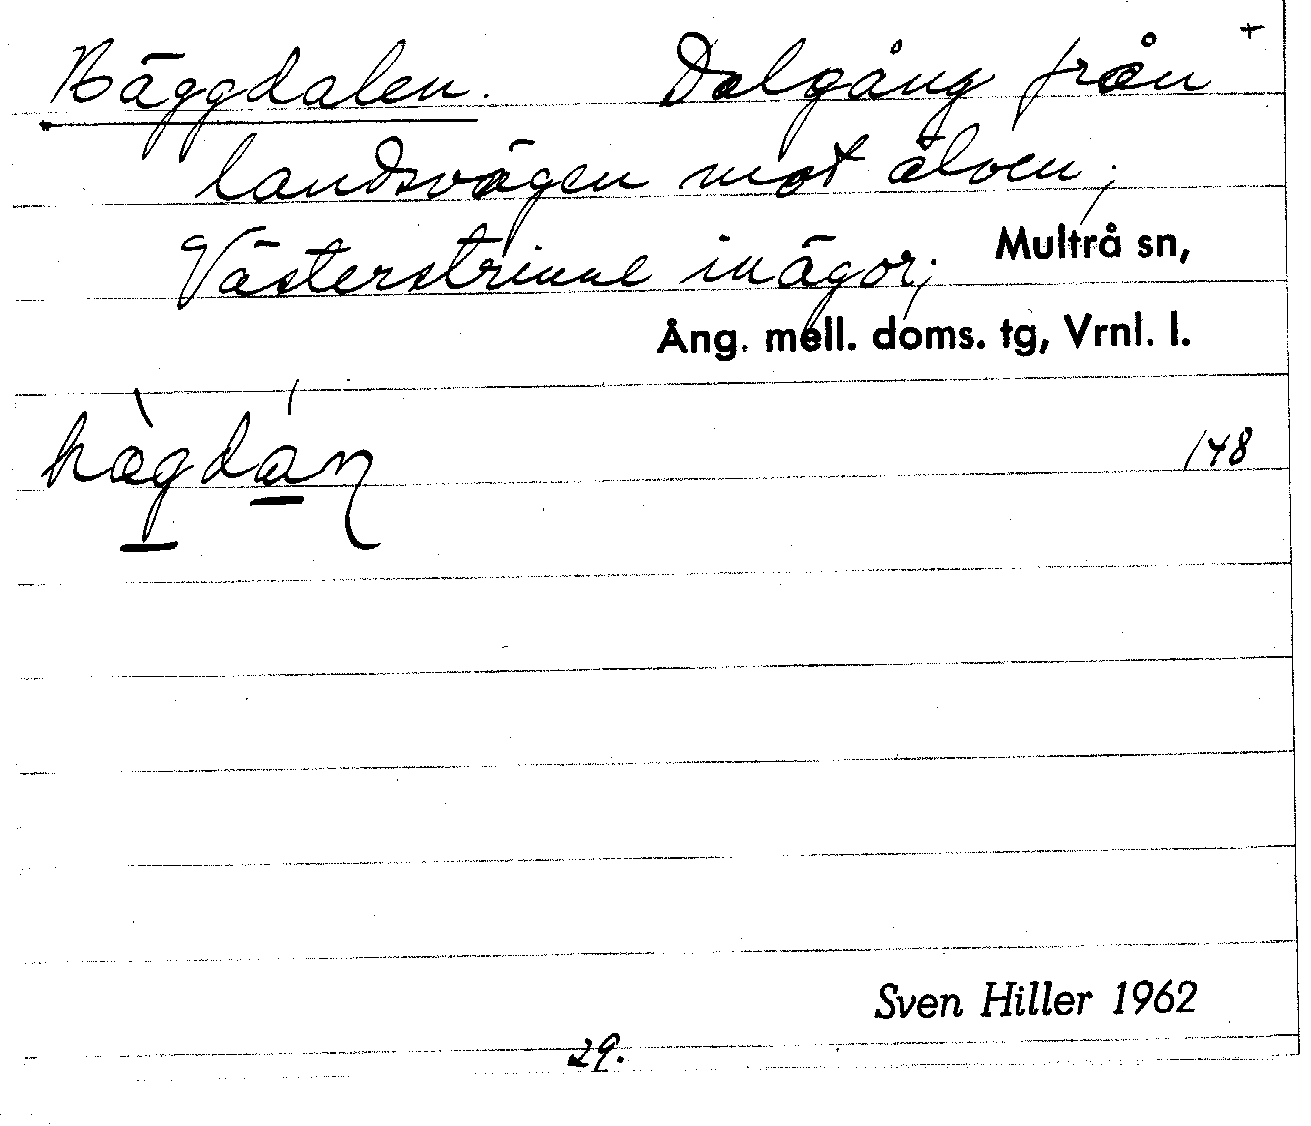 Bäggdalen. Dalgång från +
landsvägen mot älven,
Västerstrinne inägor; Multrå sn,
Ång. mell. doms. tg, Vrnl. l.
148
Sven Hiller 1962
29.